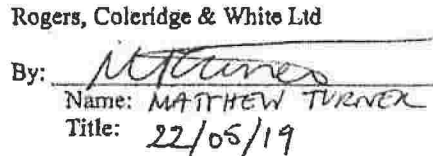 Rogers, Coleridge & White Ltd
By: MTurner
Name: MATTHEW TURNER
Title: 22/05/19